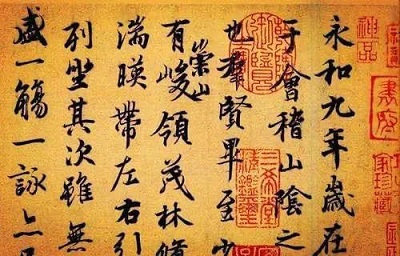 神品
永和九年歲在
于會稽山陰之
也羣賢畢至少
崇山
有峻領茂林脩
湍暎帶左右引
列坐其次雖無
盛一觴一詠亦足